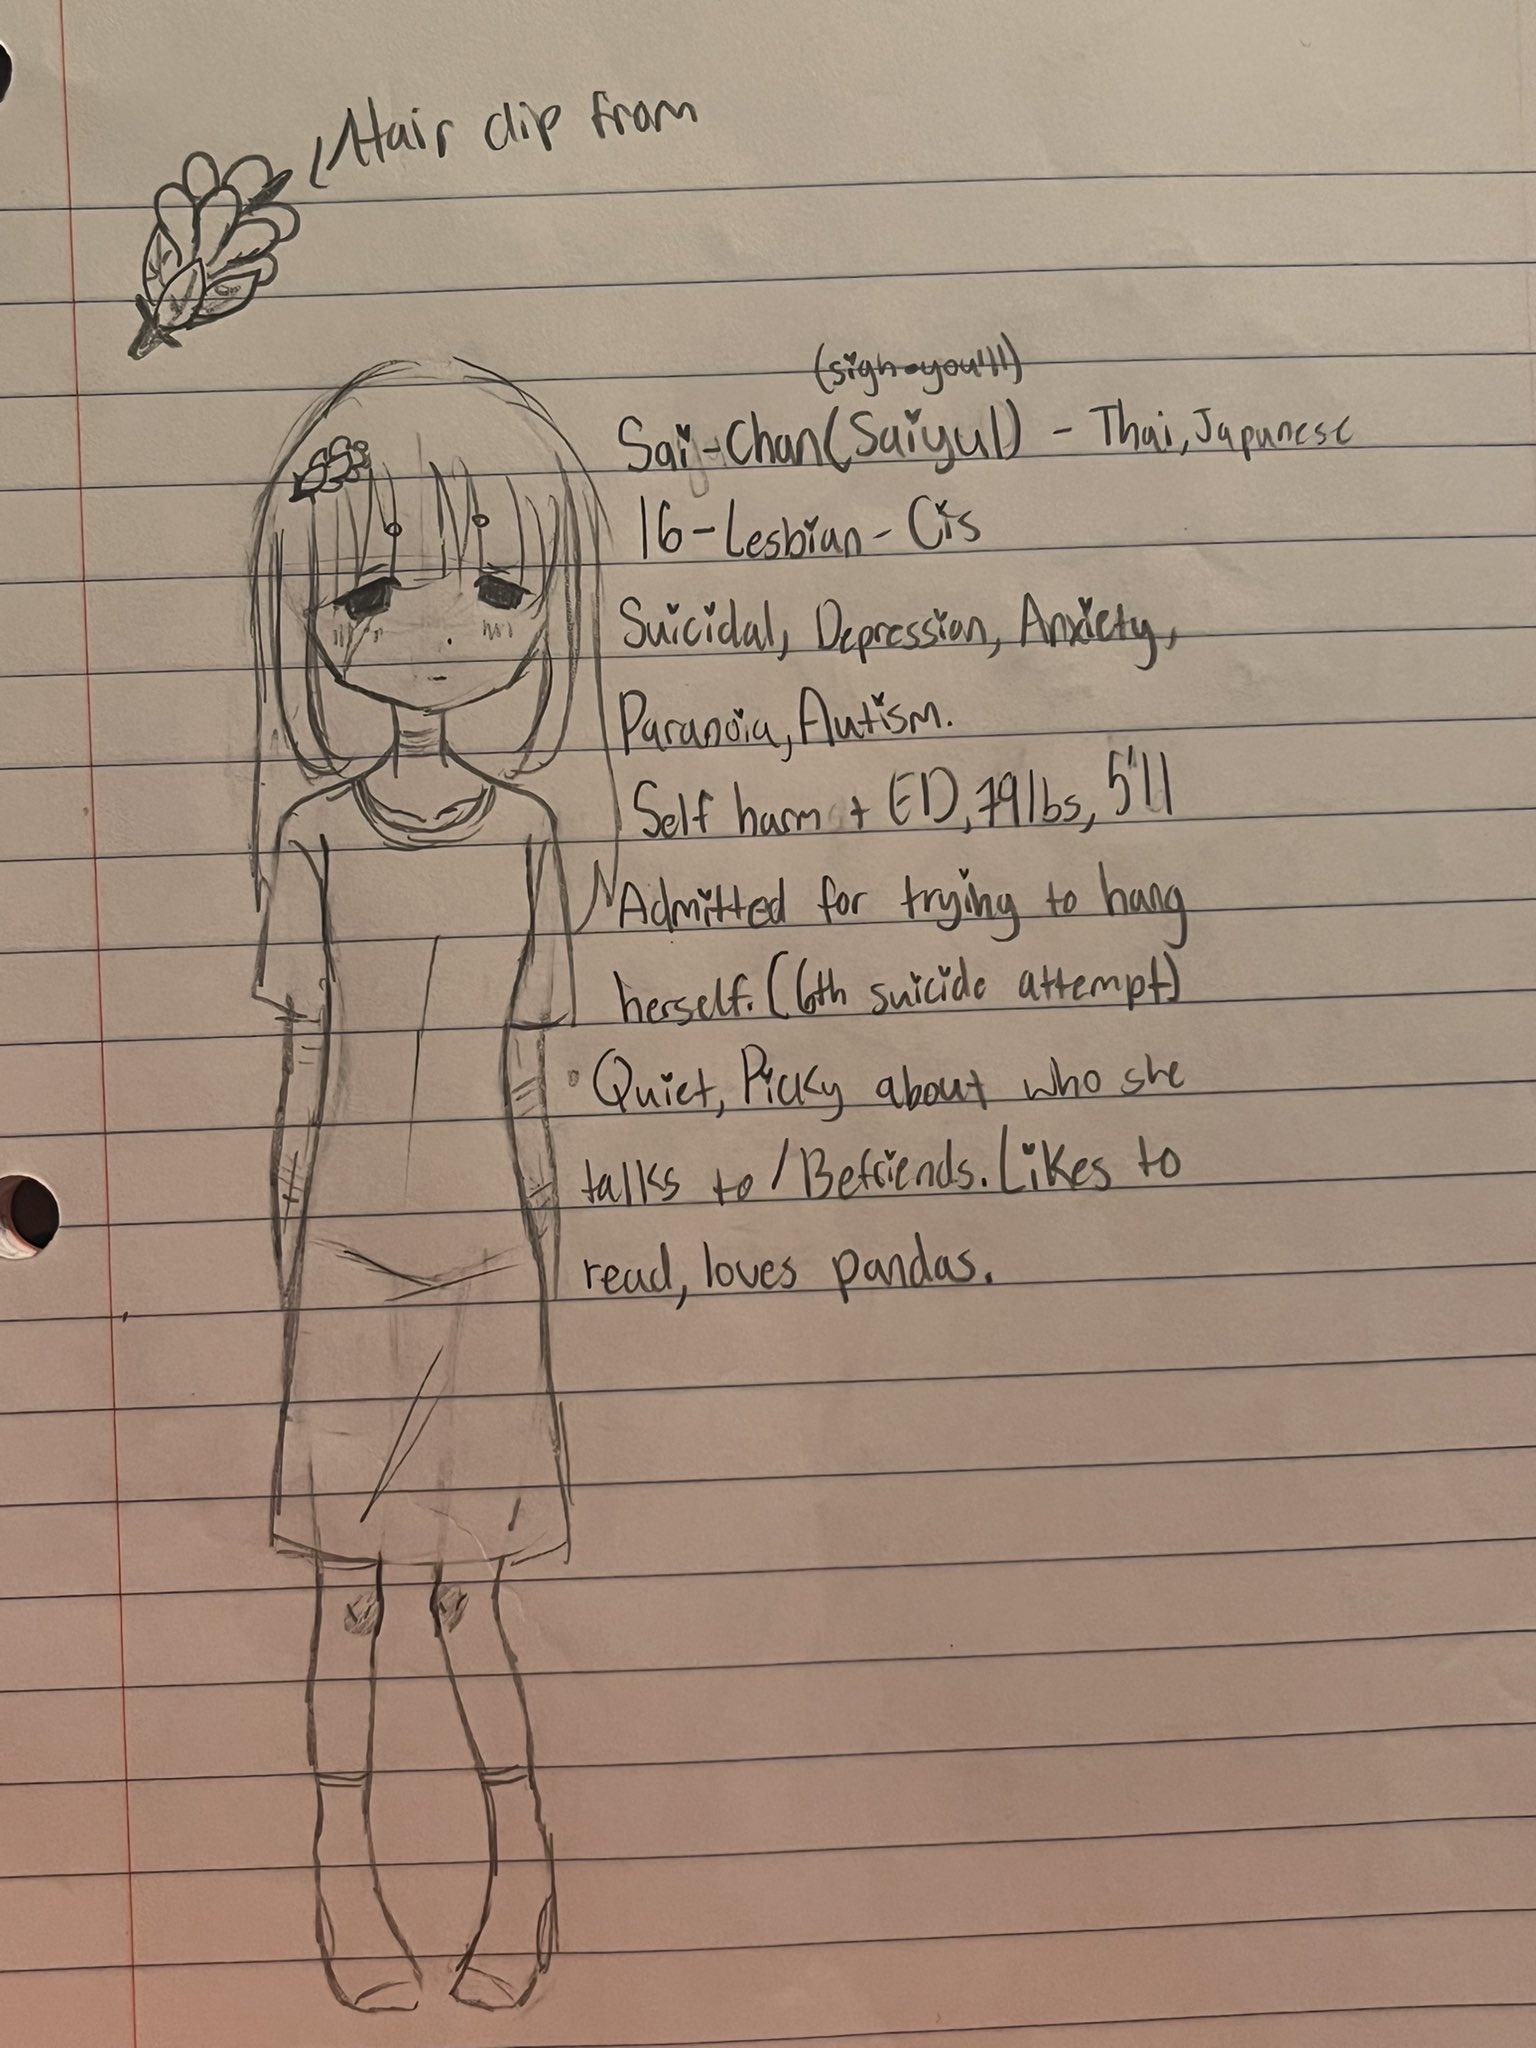 Hair clip from
(sigh-you'll)
Sai-Chan(Saiyul) - Thai, Japanese
16-Lesbian-Cis
Suicidal, Depression, Anxiety,
Paranoia, Autism.
Self harm + ED, 79lbs, 5'11
Admitted for trying to hang
herself. (6th suicide attempt)
Quiet, Picky about who she
talks to/Befriends. Likes to
read, loves pandas.